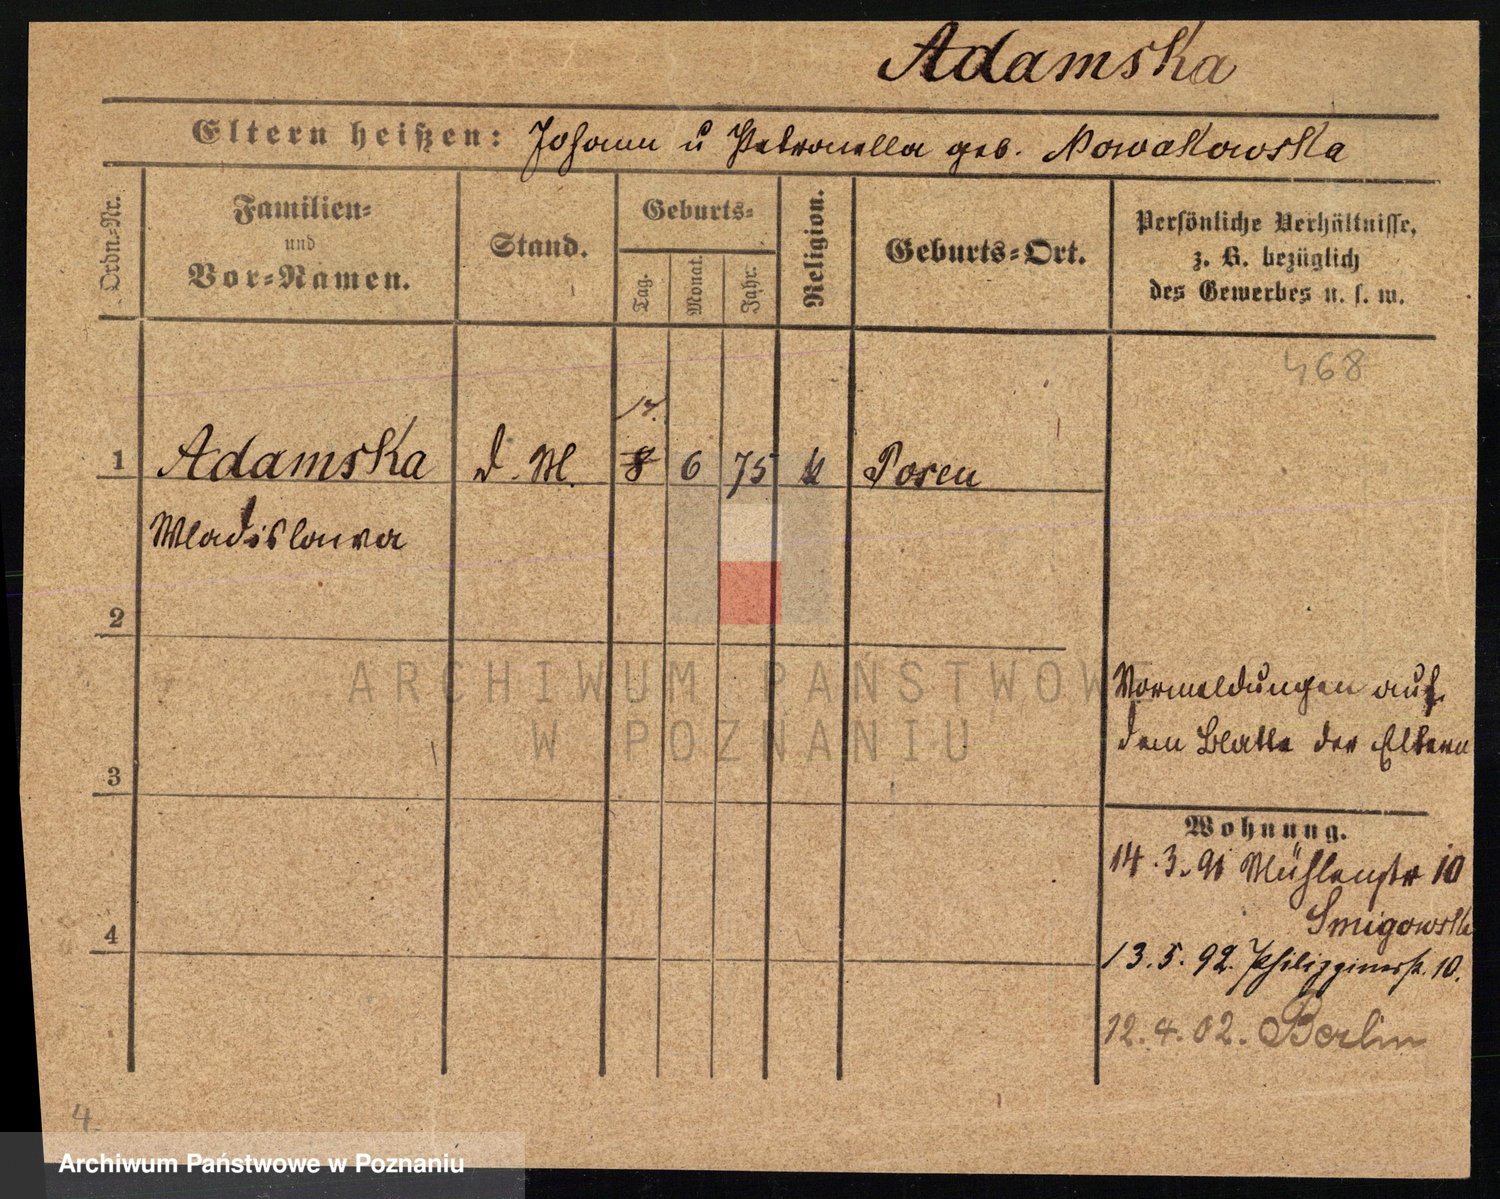 Adamska
Eltern heißen: Johann u Petronella geb. Nowakowska
Ordn.-Nr.
Familien-
und
Vor-Namen.
Stand.
Geburts-
Tag.
Monat.
Jahr.
Religion.
Geburts-Ort.
Persönliche Verhältnisse,
z. B. bezüglich
des Gewerbes u. s. w.
468
17.
1 Adamska d. M. 8 6 75 k Posen
Wladislawa
2
Vormeldungen auf
dem Blatte der Eltern
3
Wohnung.
14.3.91 Mühlenstr 10
Smigowska
4
13.5.92. Philippinerstr. 10.
12.4.02. Berlin
4
ARCHIWUM PAŃSTWOWE
W POZNANIU
Archiwum Państwowe w Poznaniu